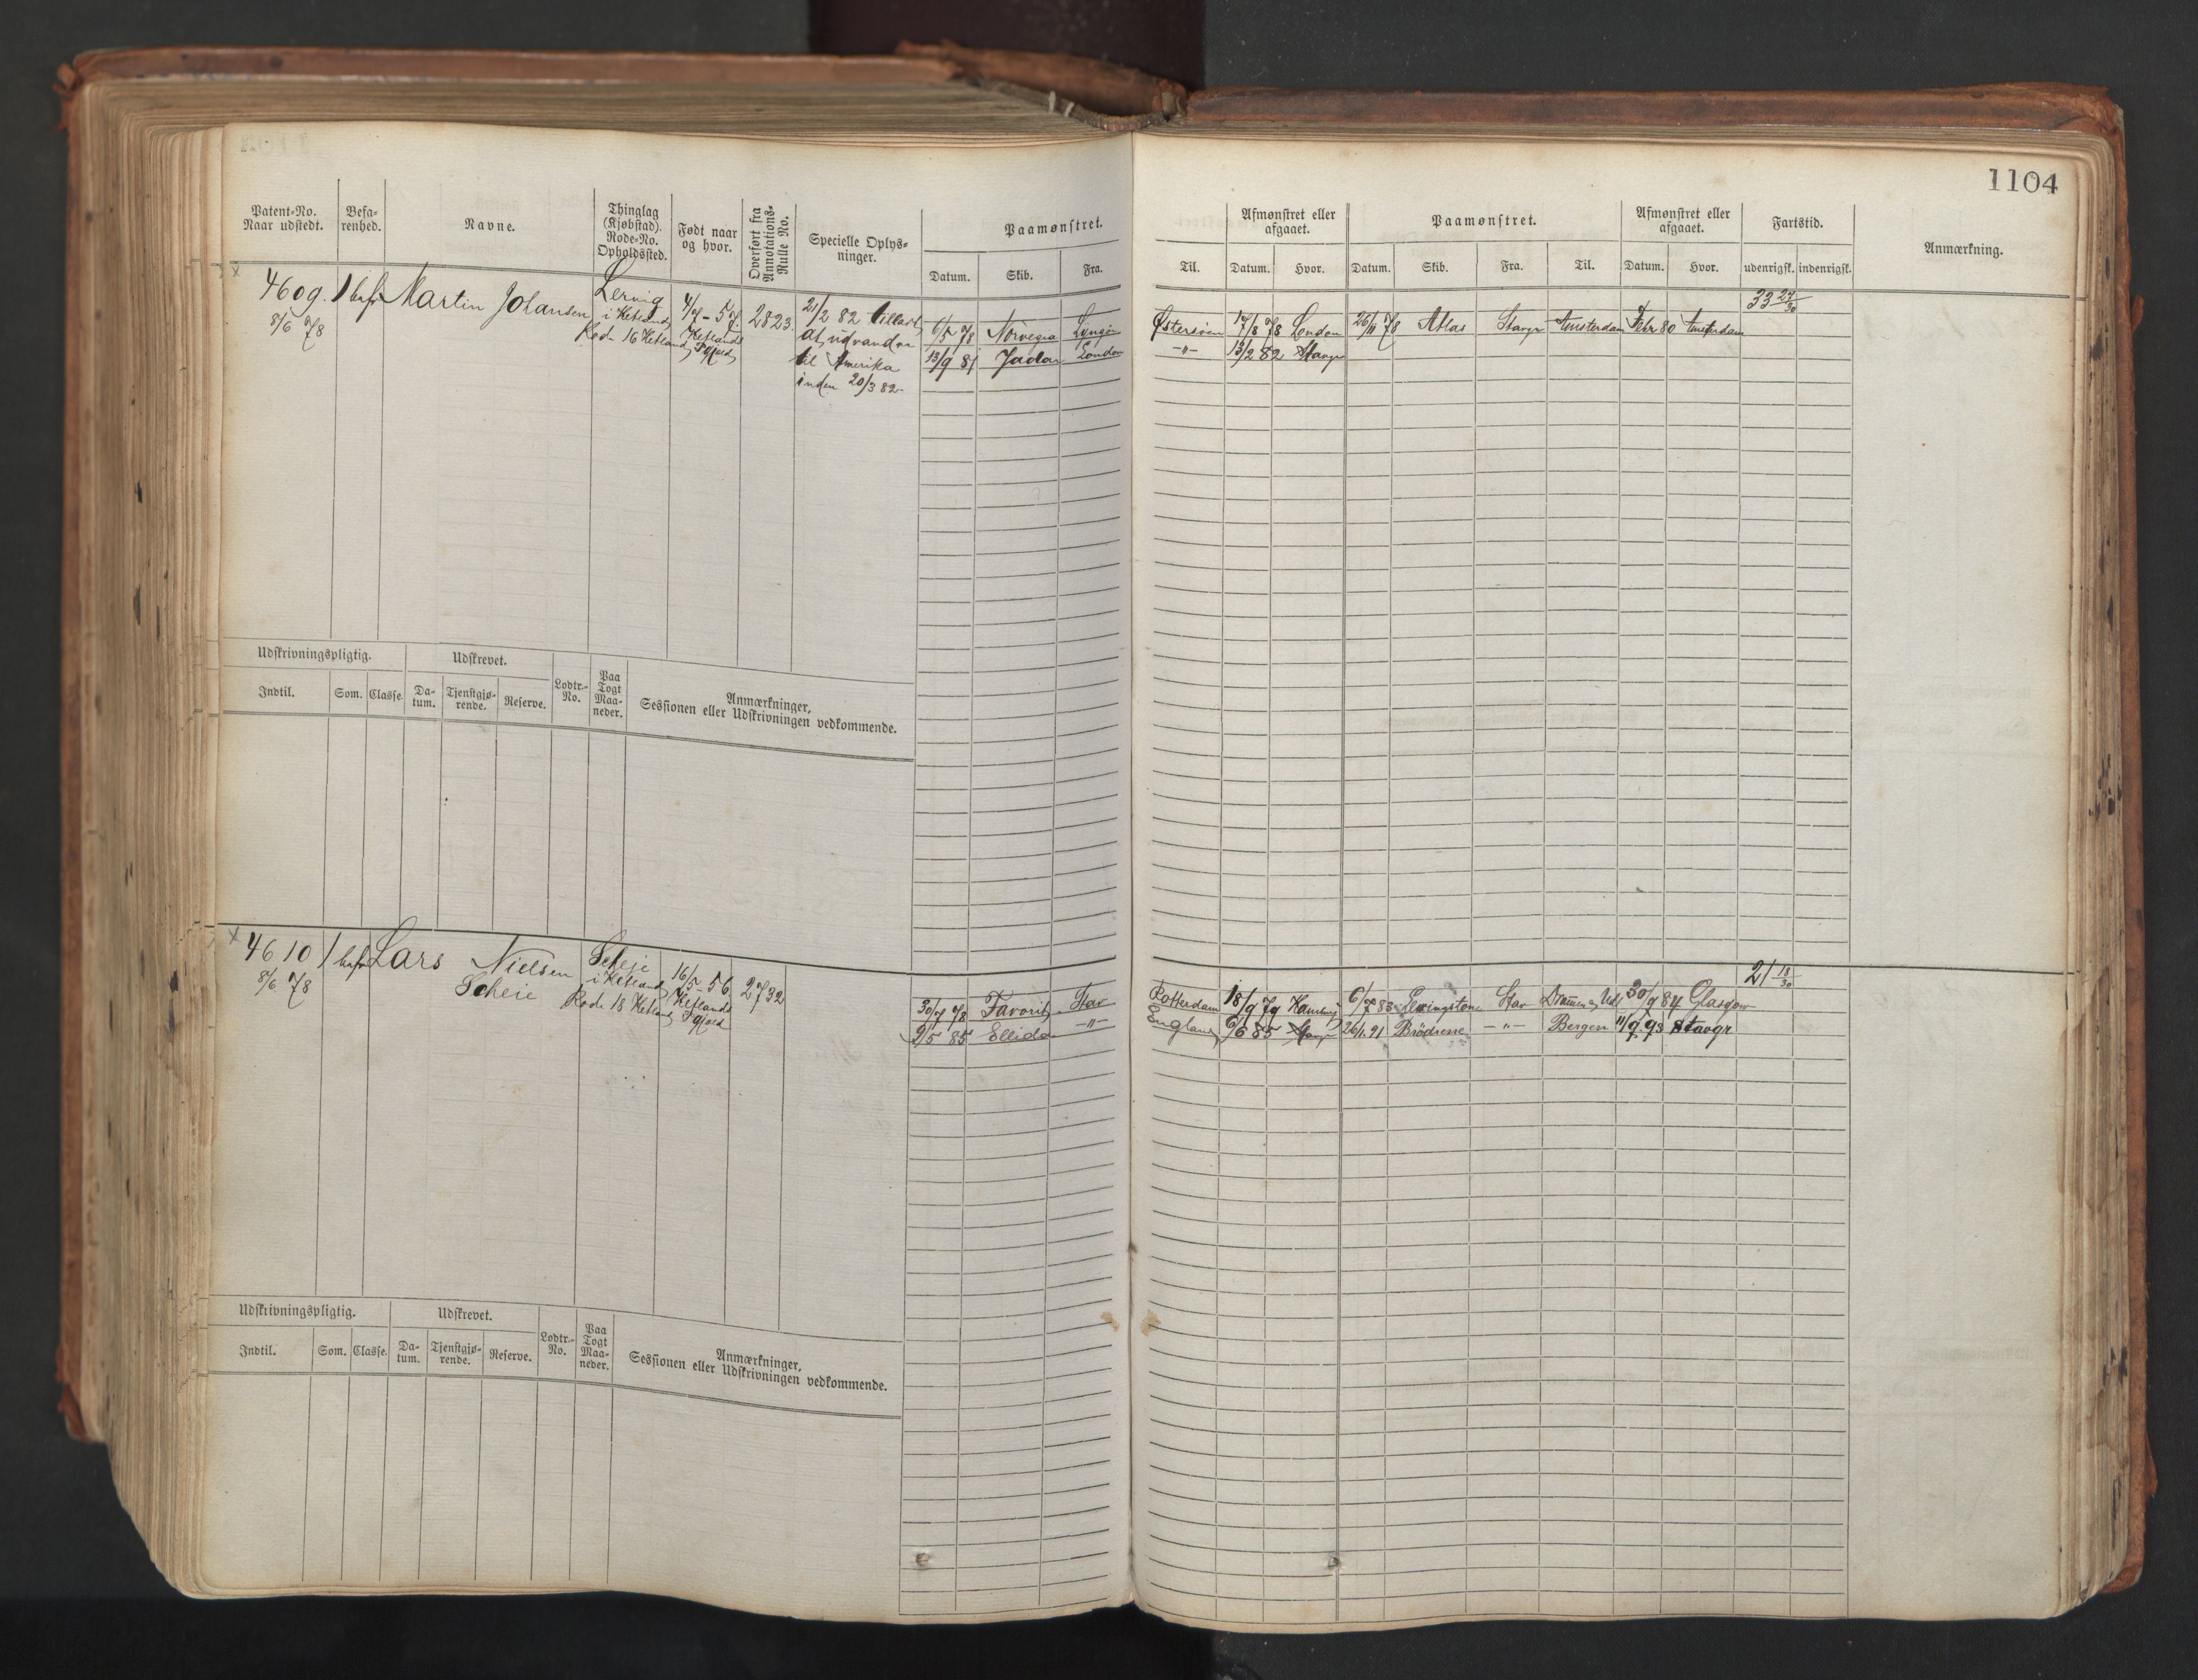 1104
Patent-No. Naar udstedt.
Befarenhed.
Navne.
Thinglag (Kjøbstad). Rode-No. Opholdssted.
Født naar og hvor.
Overført fra Annotations-Rulle No.
Specielle Oplysninger.
Paamønstret.
Datum. Skib. Fra.
Til.
Afmønstret eller afgaaet.
Datum. Hvor.
Paamønstret.
Datum. Skib. Fra. Til.
Afmønstret eller afgaaet.
Datum. Hvor.
Fartstid.
udenrigsk. indenrigsk.
Anmærkning.
4609. 1 bef. Martin Johansen
8/6 78
Lervig
i Hetland
Rode 16 Hetland
4/7-57.
Hetlands
Pgjeld
2823.
21/2 82 tilladt
at udvandre
til Amerika
inden 20/3 82.
33 27/30
6/5 78 Norvegia Lyngør Østersøen 17/8 78 London 26/11 78 Atlas Stavgr Amsterdam Febr 80 Amsterdam
13/9 81 Jadar London -"- 13/2 82 Stavgr
Udskrivningspligtig.
Indtil. Som. Classe.
Udskrevet.
Datum. Tjenstgjørende. Reserve.
Lodtr.-No.
Paa Togt Maaneder.
Anmærkninger,
Sessionen eller Udskrivningen vedkommende.
4610 1 bef Lars Nielsen
8/6 78 Scheie
Scheie
i Hetland
Rode 18 Hetland
16/5-56
Hetlands
Pgjeld
2732
21 18/30
30/7 78 Favorit Stav Rotterdam 18/9 79 Hamburg 6/7 83 Levingstone Stav 30/9 84 Glasgow
9/5 85 Ellida -"- England 6/6 85 Stavgr 26/1.91 Brödrene -"- Bergen 11/9.93 Stavgr
Udskrivningspligtig.
Indtil. Som. Classe.
Udskrevet.
Datum. Tjenstgjørende. Reserve.
Lodtr.-No.
Paa Togt Maaneder.
Anmærkninger,
Sessionen eller Udskrivningen vedkommende.